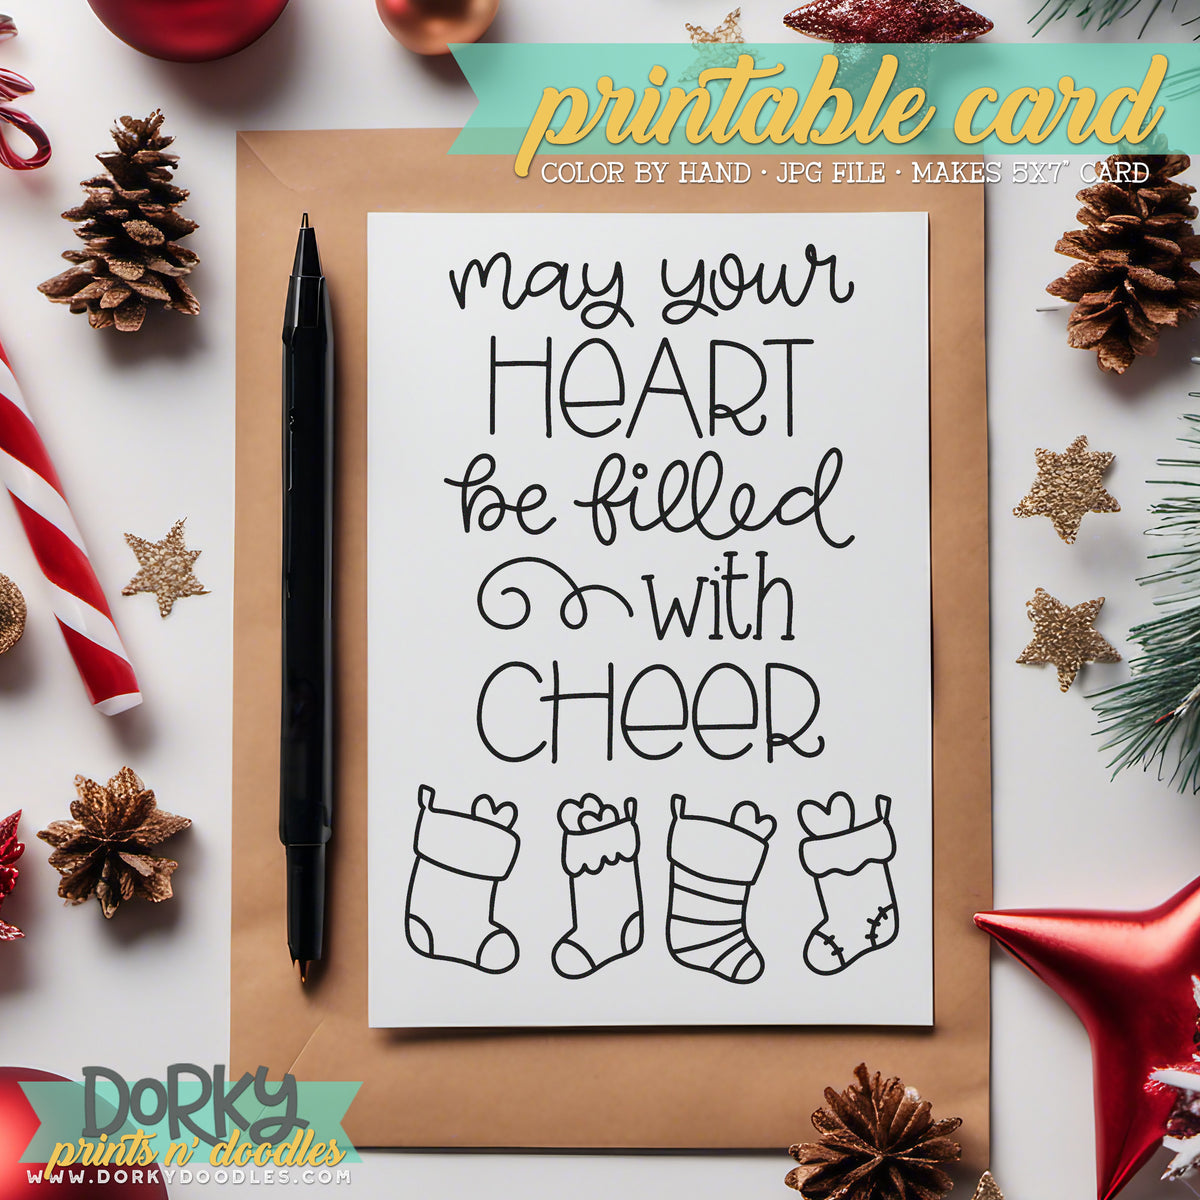 printable card
COLOR BY HAND · JPG FILE · MAKES 5X7" CARD
may your
HEART
be filled
with
CHEER
DORKY
prints n' doodles
WWW.DORKYDOODLES.COM